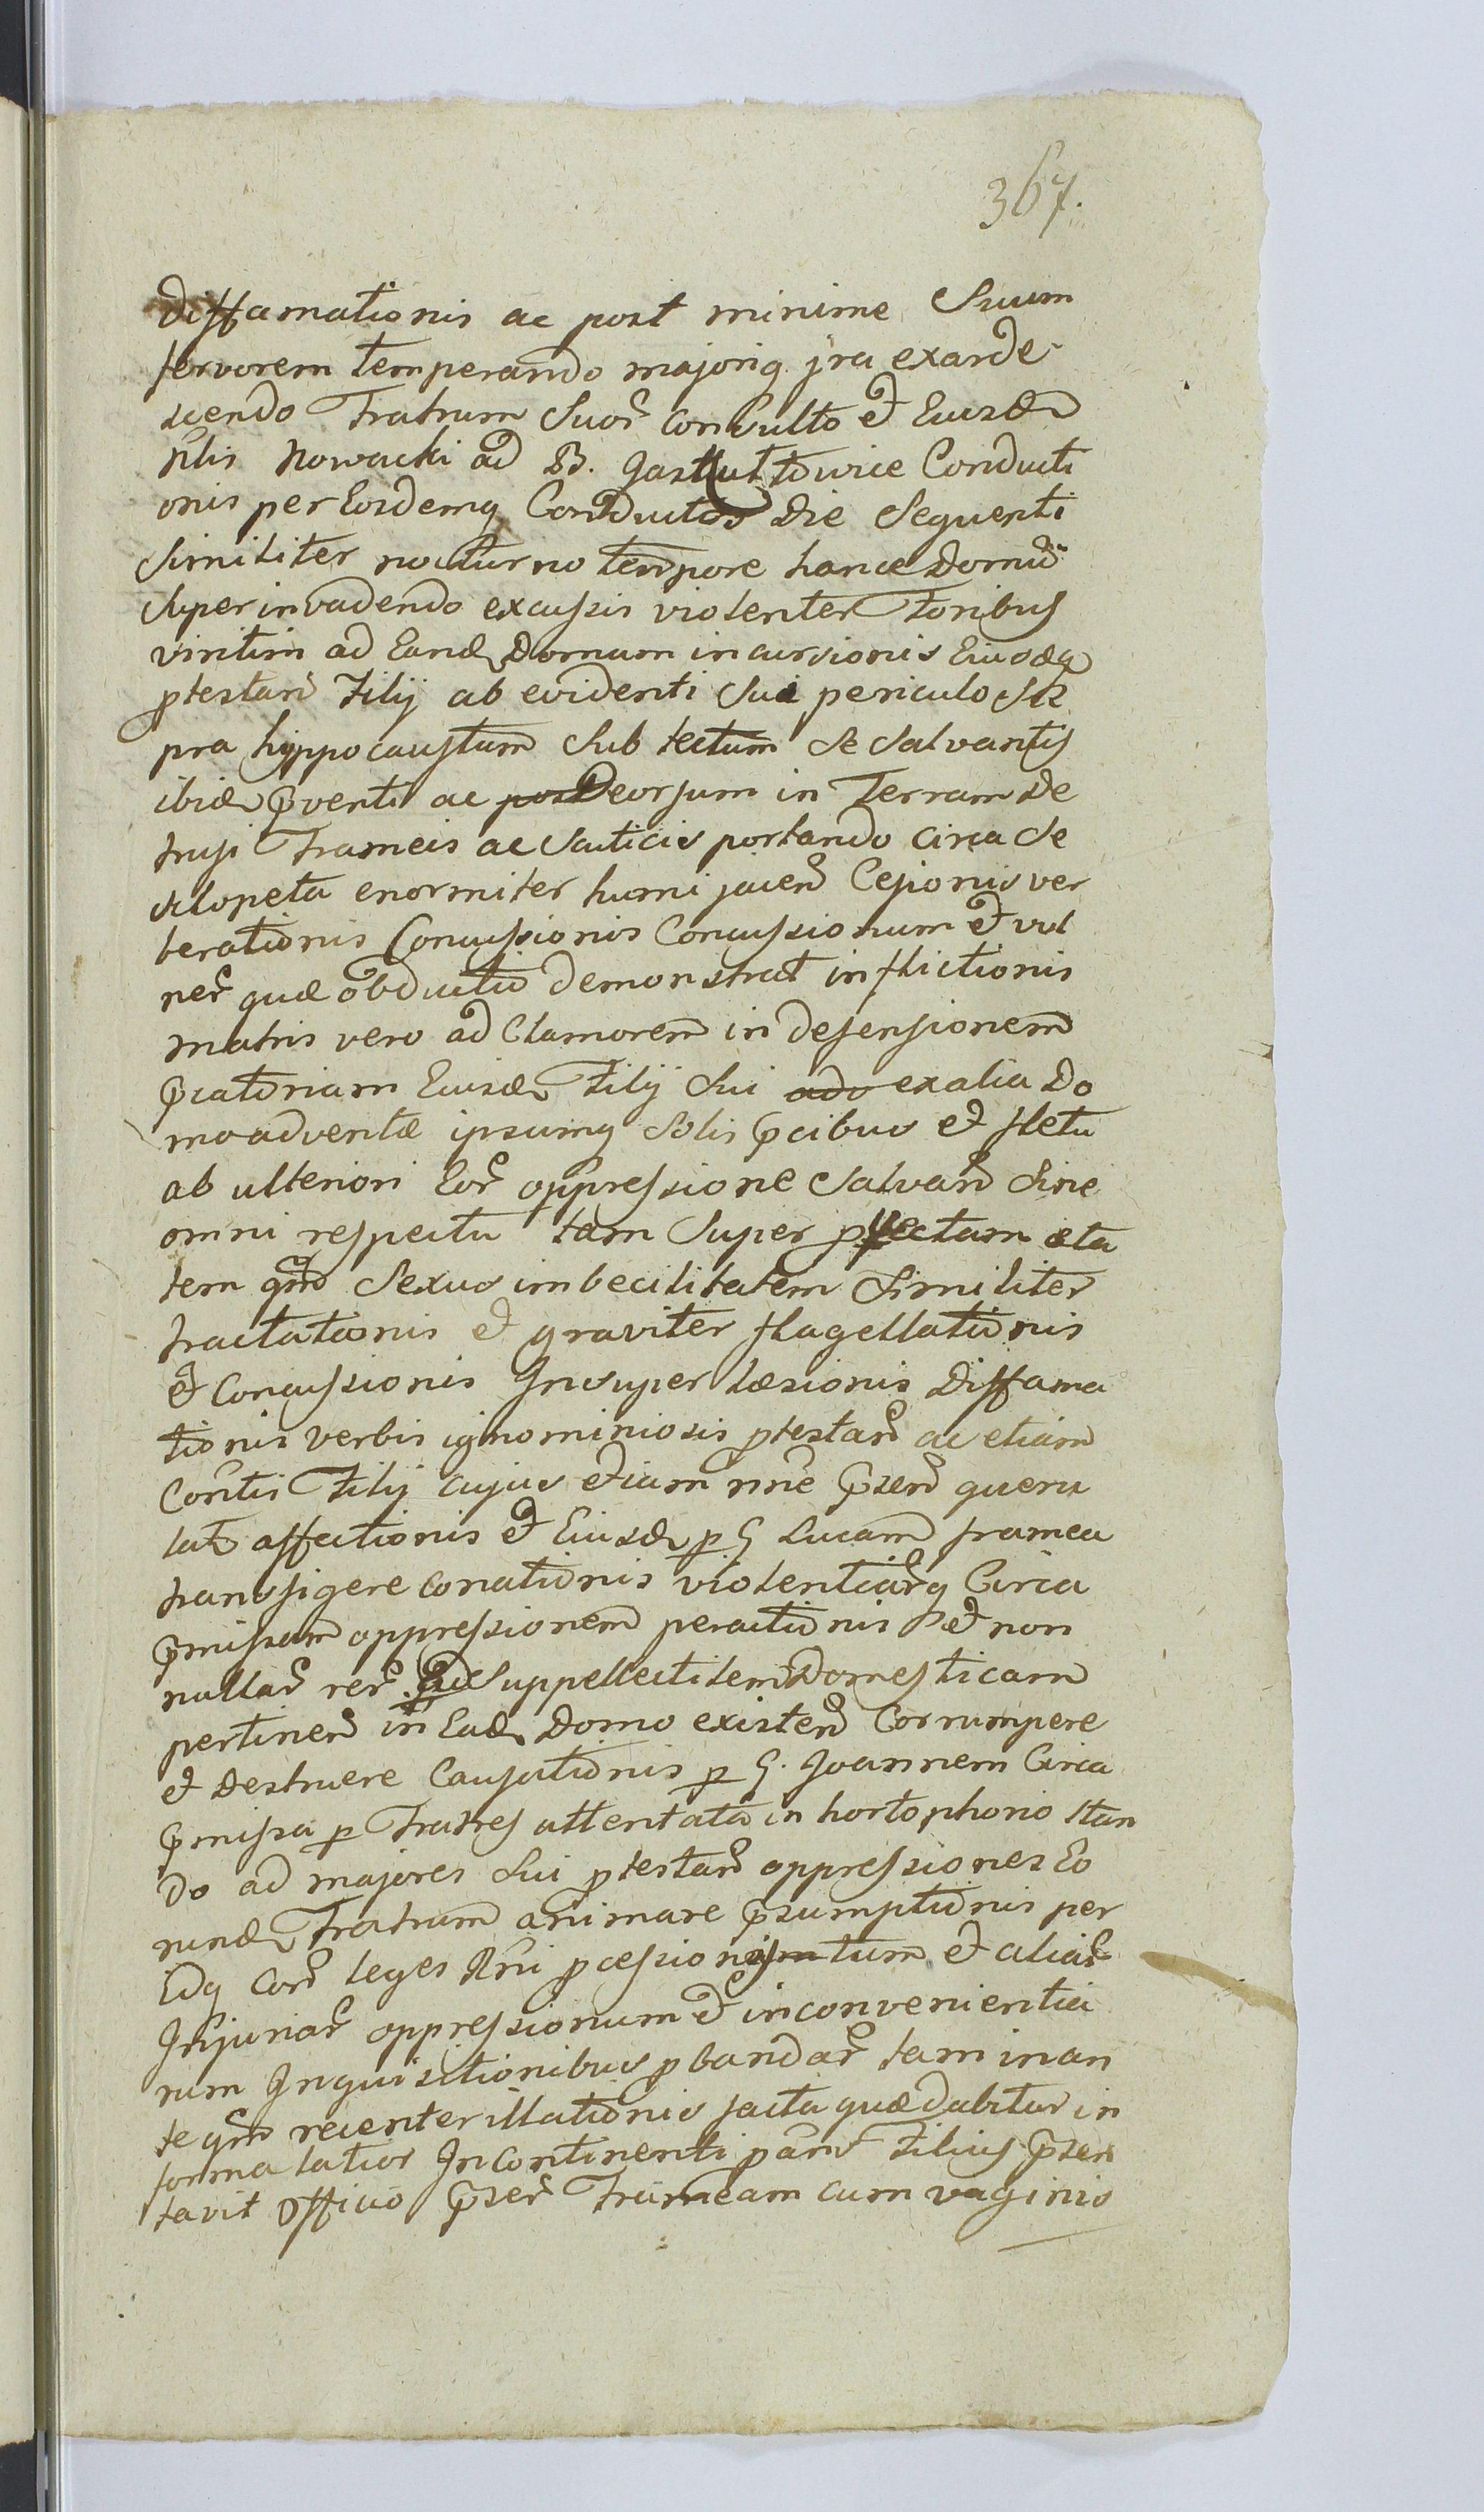 367.
Diffamationis ac post minime Suum
fervorem temperando majoriq jra exarde
scendo Fratrum Suor Consulto et Eiusd
Nblis Nowacki ad B. Conducti
onis per Eosdemq Conductos Die Sequenti
Similiter nocturno tempore hance Domu
Super invadendo excussis violenter Foribus
viritim ad Eand Domum incursionis Eiusdq
ptestan Filij ab evidenti Sui periculo Su
pra hyppocaustum Sub tectum Se Salvantis
ibid pventi ac Deorsum in Terram De
trusi Frameis ac Scuticis portando Circa Se
sclopeta enormiter humi jacen Cesionis ver
berationis Concussionis Concussionum et vul
ner quæ obductio demonstrat inflictionis
matris vero ad Clamorem in defensionem
pcatoriam Eiusd Filij Sui ado ex alia Do
mo adventæ ipsumq Solis pcibus et fletu
ab ulteriori Eor oppressione Salvan Sine
omni respectu tam Super pvectam æta
tem qm Sexus imbecilitatem Similiter
tractationis et graviter flagellationis
et Concussionis Insuper læsionis Diffama
tionis verbis ignominiosis ptestan ac etiam
Contis Filij cujus etiam nne psen queru
lat affectionis et Eiusd p G Lucam framea
transfigere conationis violentiarq Circa
pmissam oppressionem peractionis et non
nullar rer ad Suppellectilem Domesticam
pertinen in Ead Domo existen Corrumpere
et Destruere Causationis p G. Joannem Circa
pmissa p Fratres attentata in hortophorio Stan
do ad majores Sui ptestan oppressiones Eo
rund Fratrum animare psumptionis per
Idq Con leges Rni pcessionis tum et aliar
Injuriar oppressionum et inconvenientia
rum Inquisitionibus pbandar tam in an
te qm recenter illationis facta quæ dabitur in
forma latior In Continenti p Filius psen
tavit Officio psen Frameam cum vaginis